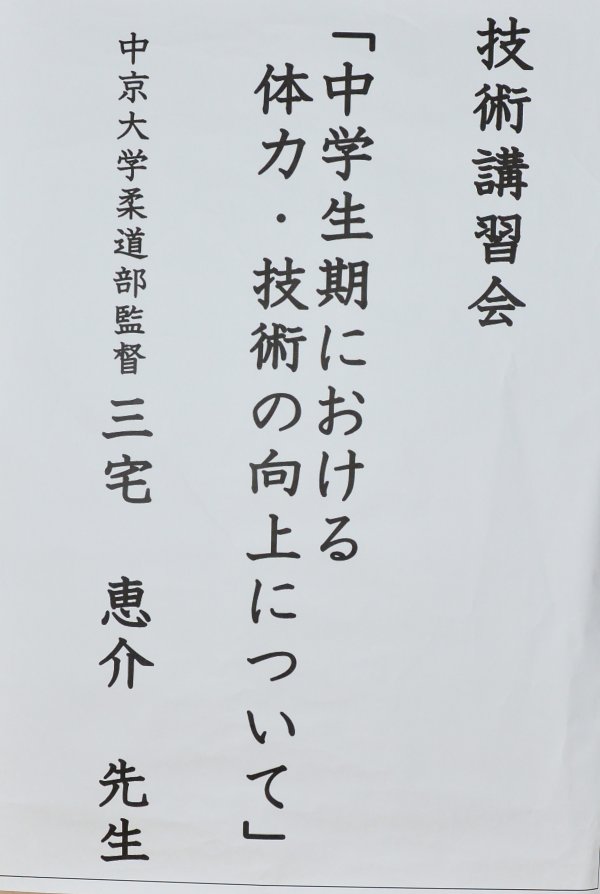 技術講習会
「中学生期における
体力・技術の向上について」
中京大学柔道部監督 三宅 恵介 先生